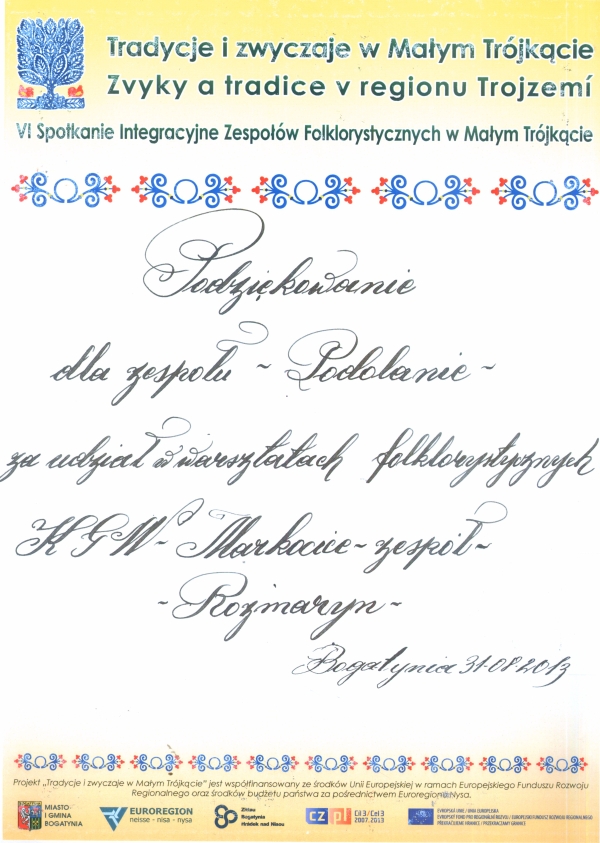 Tradycje i zwyczaje w Małym Trójkącie
Zvyky a tradice v regionu Trojzemí
VI Spotkanie Integracyjne Zespołów Folklorystycznych w Małym Trójkącie
Podziękowanie
dla zespołu ~ Podolanie ~
za udział w warsztatach folklorystycznych
KGW ~ Markocice ~ zespół ~
~ Rozmaryn ~
Bogatynia 31-08-2013
Projekt „Tradycje i zwyczaje w Małym Trójkącie" jest współfinansowany ze środków Unii Europejskiej w ramach Europejskiego Funduszu Rozwoju
Regionalnego oraz środków budżetu państwa za pośrednictwem Euroregionu Nysa.
MIASTO
I GMINA
BOGATYNIA
EUROREGION
neisse - nisa - nysa
Zittau
Bogatynia
Hrádek nad Nisou
cz pl
Cíl 3 / Cel 3
2007-2013
EVROPSKÁ UNIE / UNIA EUROPEJSKA
EVROPSKÝ FOND PRO REGIONÁLNÍ ROZVOJ / EUROPEJSKI FUNDUSZ ROZWOJU REGIONALNEGO
PŘEKRAČUJEME HRANICE / PRZEKRACZAMY GRANICE